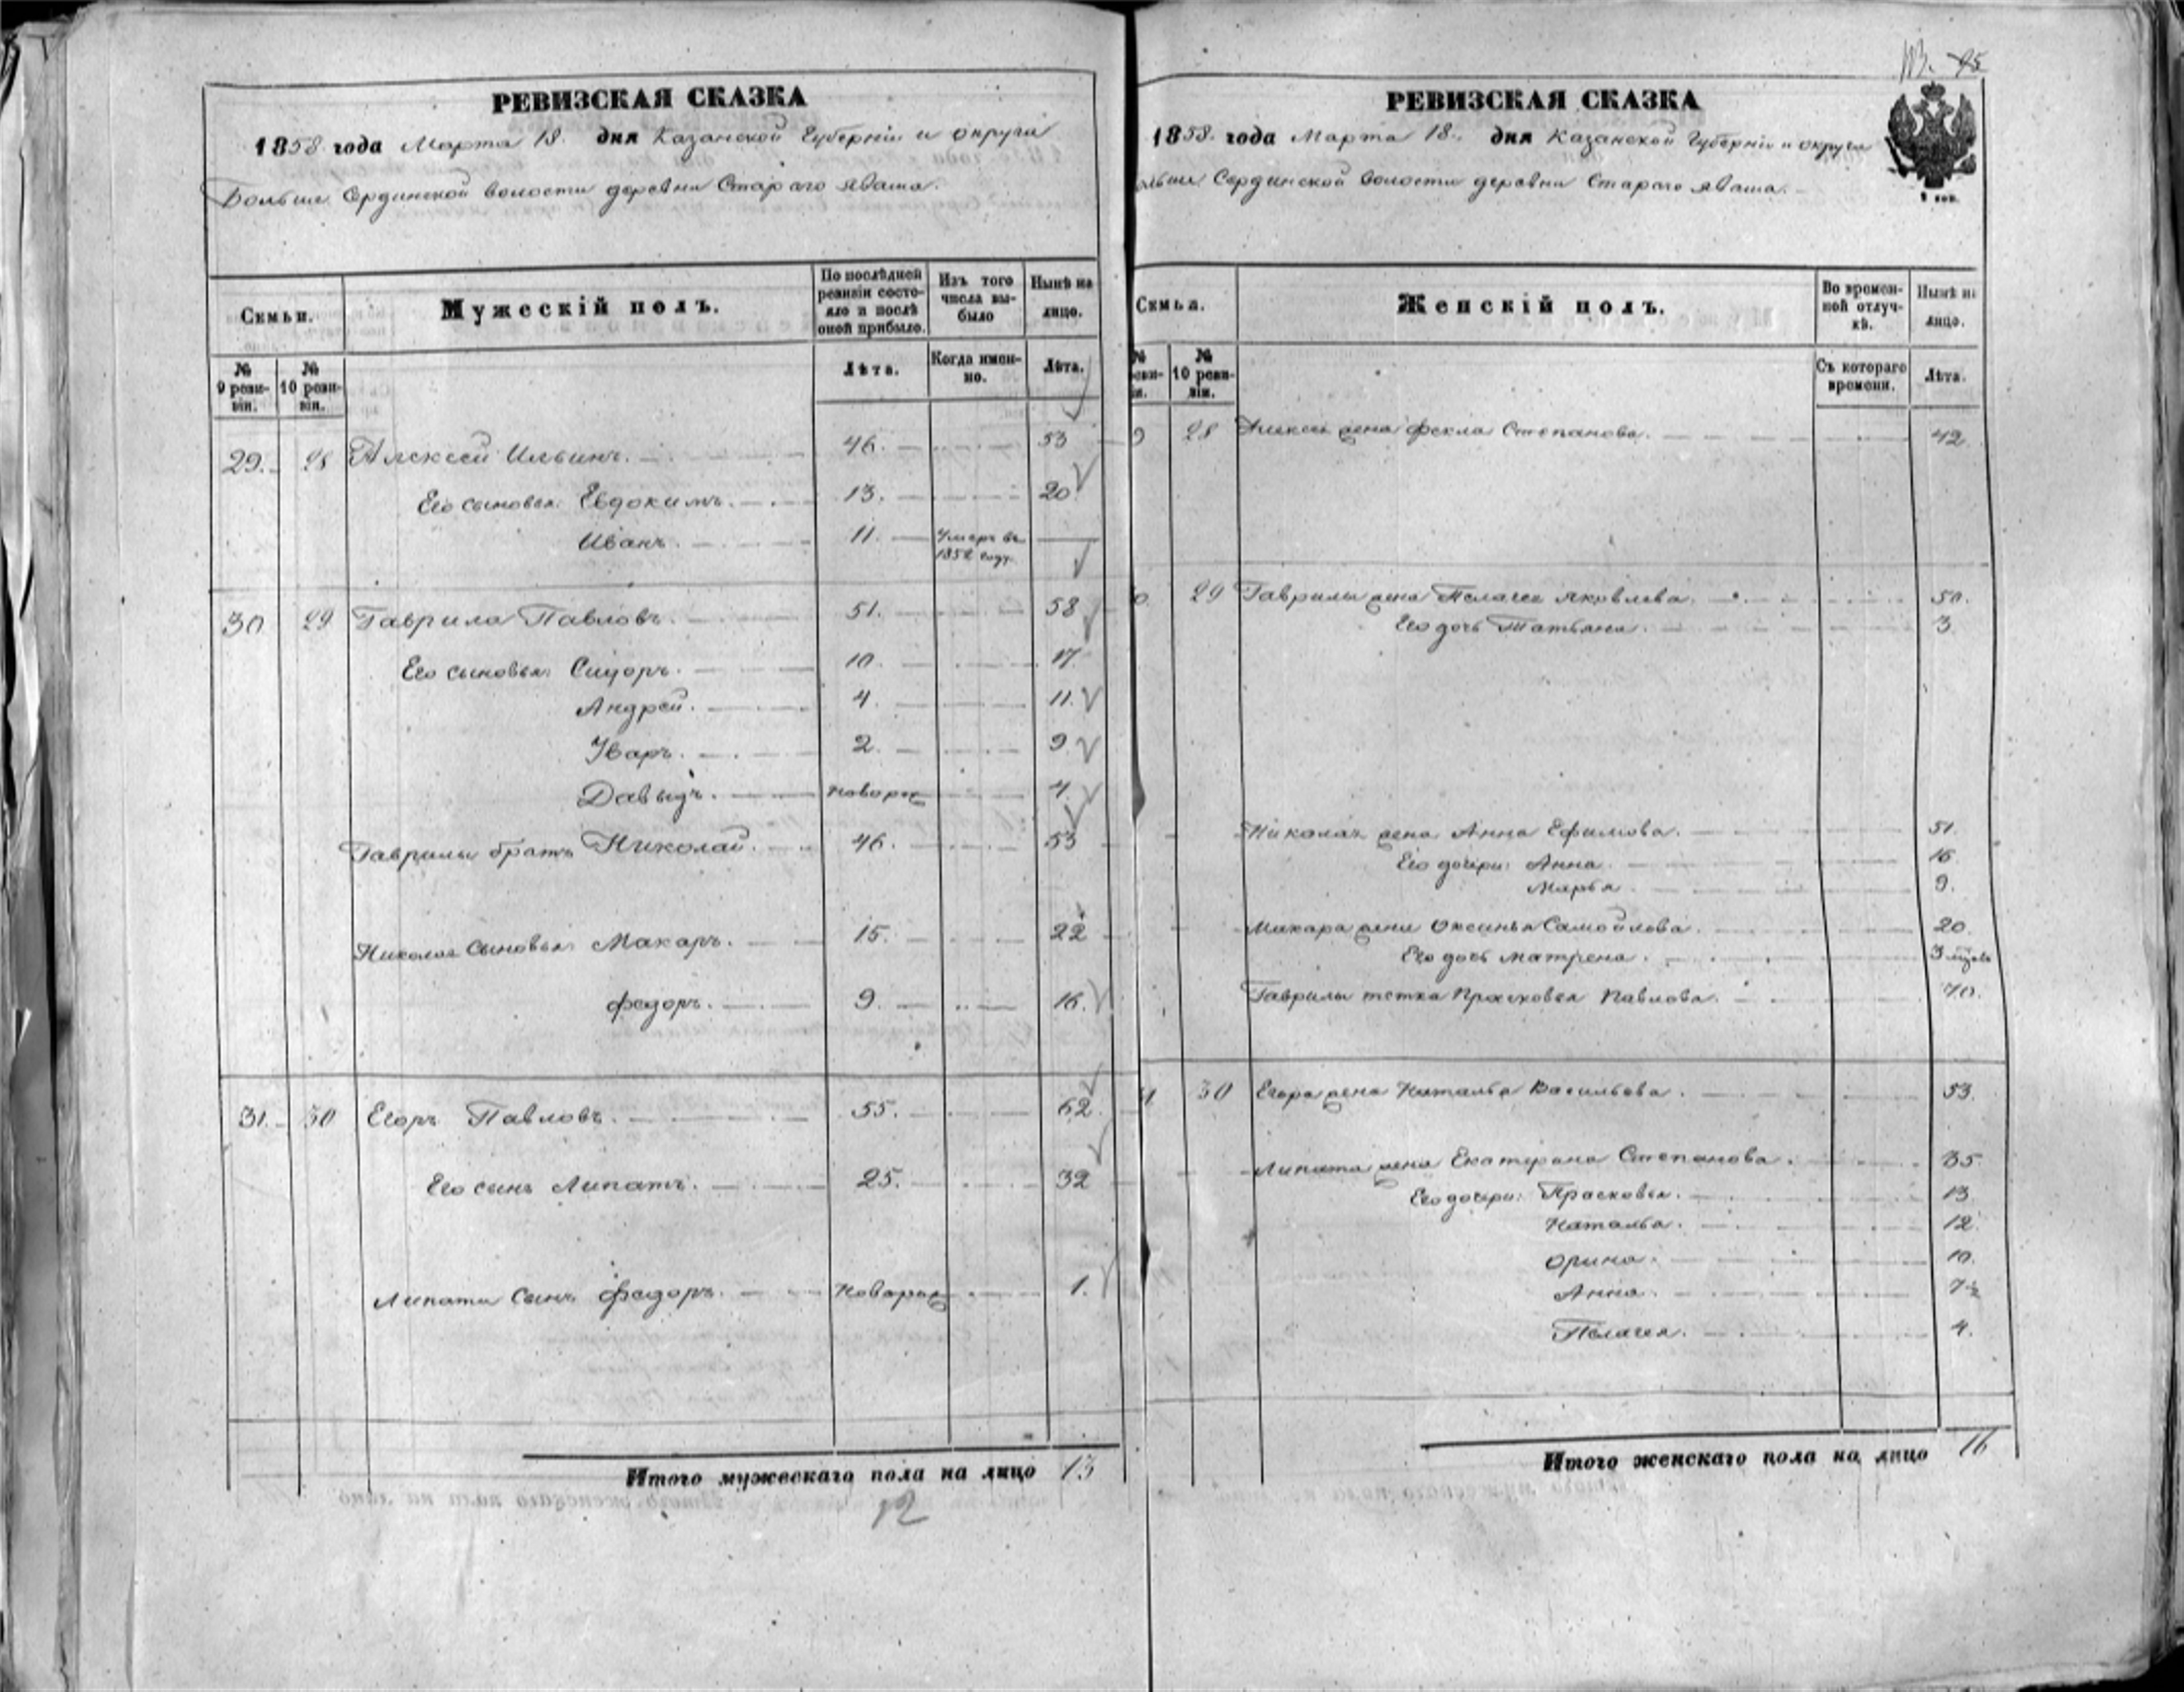 РЕВИЗСКАЯ СКАЗКА
1858 года Марта 18. дня Казанской Губерніи и округи
Больше Сердинской волости деревни Стараго Яваша.
Семьи.
Мужескій полъ.
По послѣдней ревизіи состояло и послѣ оной прибыло.
Изъ того числа выбыло
Нынѣ на лицо.
№ 9 ревизіи.
№ 10 ревизіи.
Лѣта.
Когда именно.
Лѣта.
29. 28 Алексей Ильинъ. 46. 53
Его сыновья: Евдокимъ. 13. 20
Иванъ. 11. Умеръ въ 1852 году.
30 29 Гаврила Павловъ. 51. 58
Его сыновья: Сидоръ. 10. 17
Андрей. 4. 11.
Уваръ. 2. 9
Давыдъ. новорож 4.
Гаврилы братъ Николай. 46. 53
Николая сыновья: Макаръ. 15. 22
Федоръ. 9. 16.
31. 30 Егоръ Павловъ. 55. 62.
Его сынъ Липатъ. 25. 32
Липата сынъ Федоръ. Новорож 1.
Итого мужескаго пола на лицо 13
12
113. 95
РЕВИЗСКАЯ СКАЗКА
1858. года Марта 18. дня Казанской Губерніи и округи
ольше Сердинской волости деревни Стараго Яваша.
Семья.
Женскій полъ.
Во временной отлучкѣ.
Нынѣ на лицо.
№
№ 10 ревизіи.
Съ котораго времени.
Лѣта.
9 28 Алексея жена Фекла Степанова. 42
0 29 Гаврилы жена Пелагея Яковлева. 50.
Его дочь Татьяна. 3
Николая жена Анна Ефимова. 51.
Его дочери: Анна. 16
Марья. 9.
Макара жена Оксинья Самойлова. 20.
Его дочь Матрена. 3
Гаврилы тетка Прасковья Павлова. 70.
1 30 Егора жена Наталья Васильева. 53.
Липата жена Екатерина Степанова. 35.
Его дочери: Прасковья. 13
Наталья. 12.
Орина. 10.
Анна. 7½
Пелагея. 4.
Итого женскаго пола на лицо 16